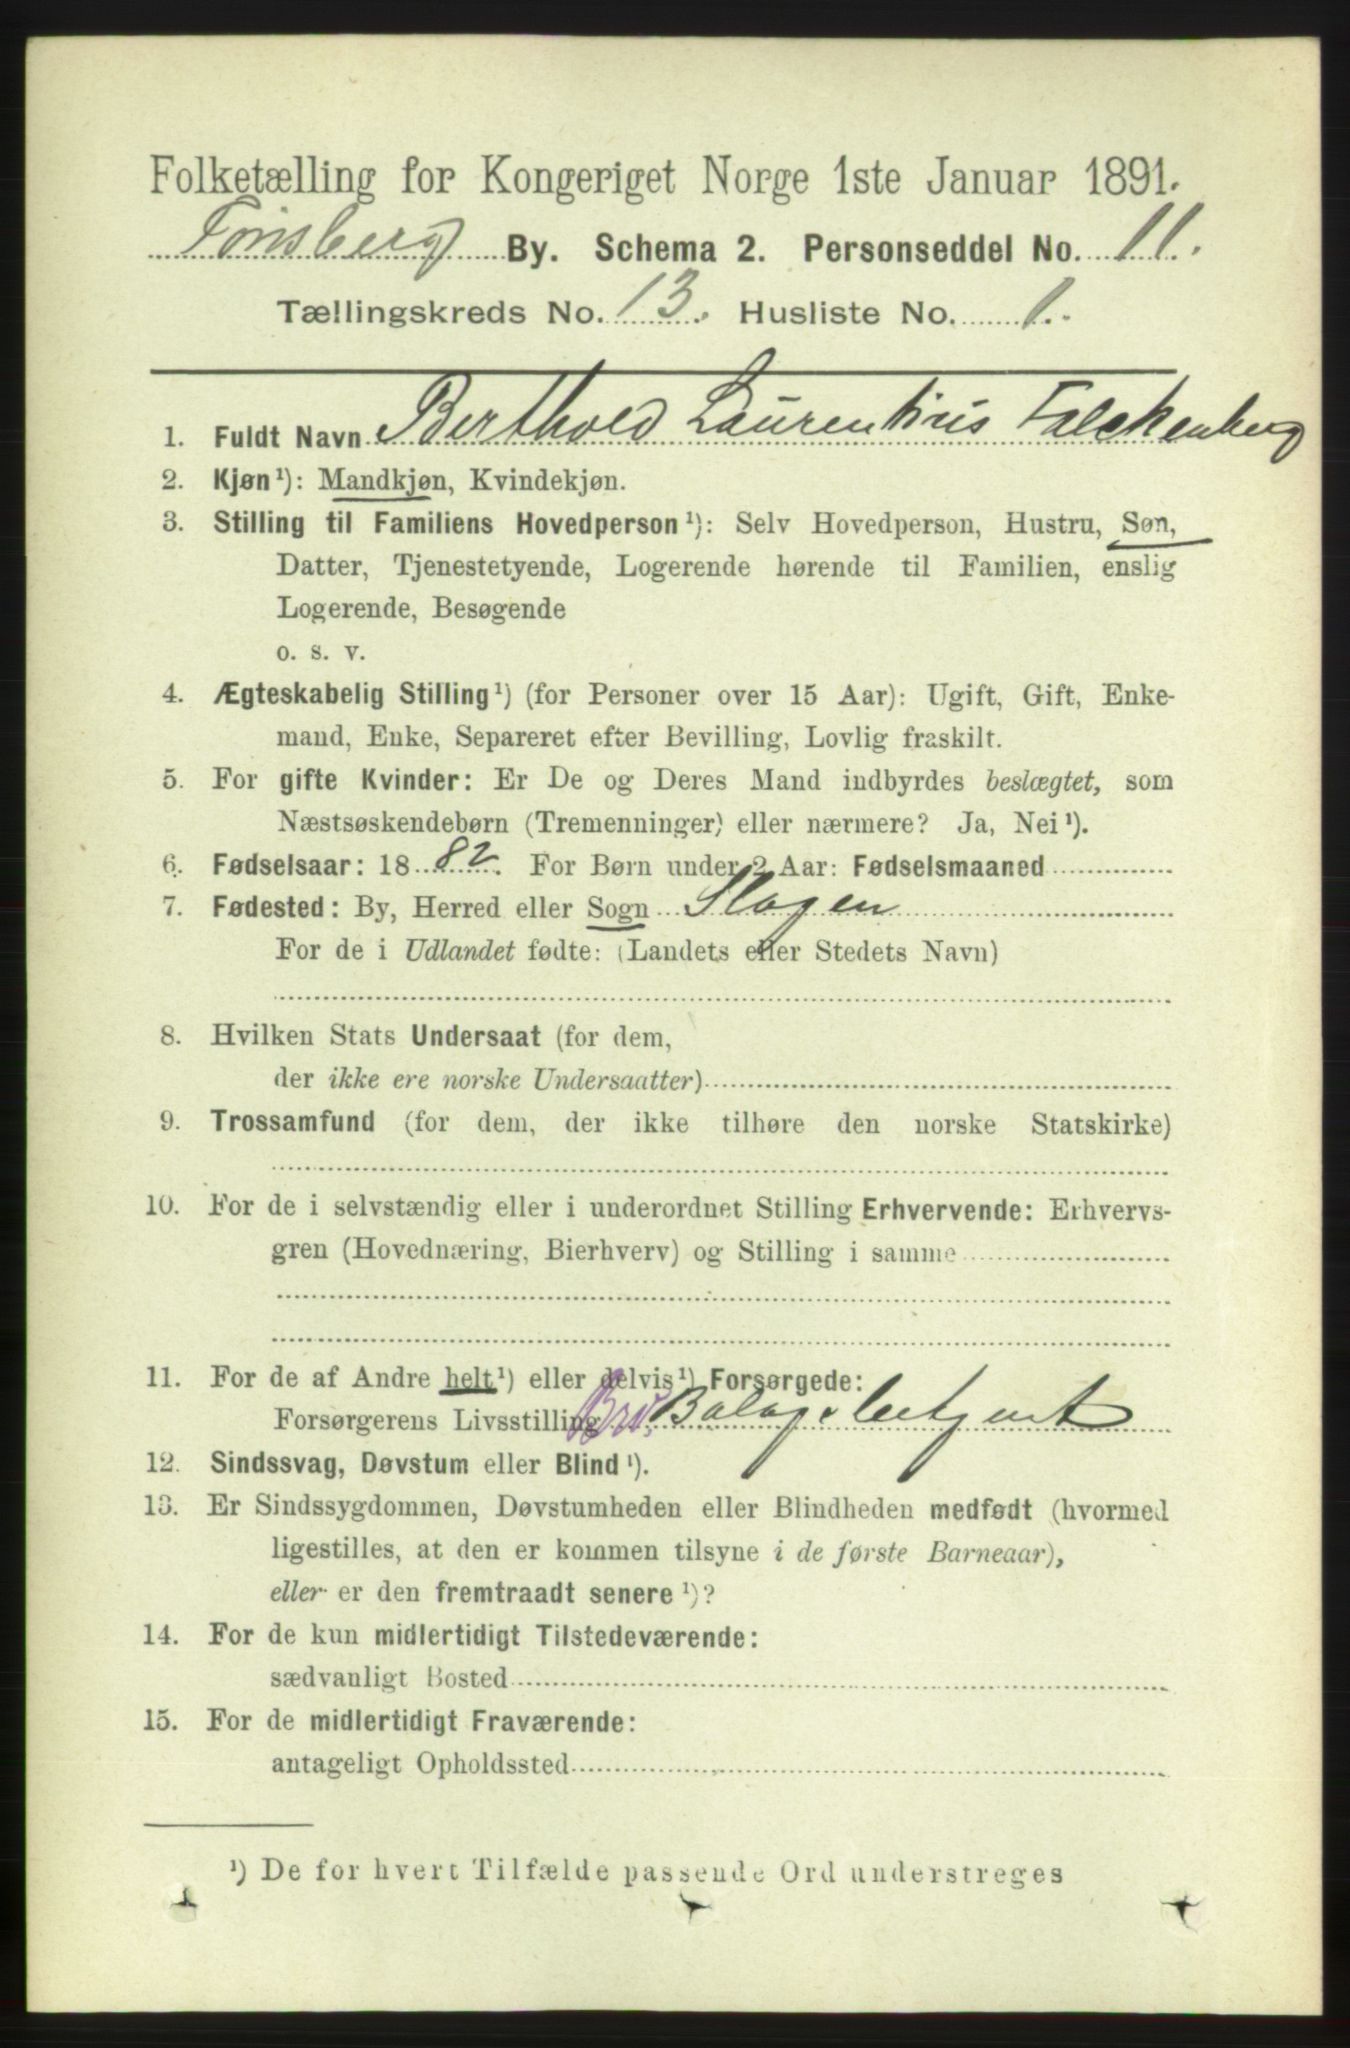 Folketælling for Kongeriget Norge 1ste Januar 1891.
Tønsberg By. Schema 2. Personseddel No. 11.
Tællingskreds No. 13. Husliste No. 1.
1. Fuldt Navn Berthold Laurentius Falckenberg
2. Kjøn¹): Mandkjøn, Kvindekjøn.
3. Stilling til Familiens Hovedperson¹): Selv Hovedperson, Hustru, Søn,
Datter, Tjenestetyende, Logerende hørende til Familien, enslig
Logerende, Besøgende
o. s. v.
4. Ægteskabelig Stilling¹) (for Personer over 15 Aar): Ugift, Gift, Enke-
mand, Enke, Separeret efter Bevilling, Lovlig fraskilt.
5. For gifte Kvinder: Er De og Deres Mand indbyrdes beslægtet, som
Næstsøskendebørn (Tremenninger) eller nærmere? Ja, Nei¹).
6. Fødselsaar: 1882. For Børn under 2 Aar: Fødselsmaaned
7. Fødested: By, Herred eller Sogn Slagen
For de i Udlandet fødte: (Landets eller Stedets Navn)
8. Hvilken Stats Undersaat (for dem,
der ikke ere norske Undersaatter)
9. Trossamfund (for dem, der ikke tilhøre den norske Statskirke)
10. For de i selvstændig eller i underordnet Stilling Erhvervende: Erhvervs-
gren (Hovednæring, Bierhverv) og Stilling i samme
11. For de af Andre helt¹) eller delvis¹) Forsørgede:
Forsørgerens Livsstilling
12. Sindssvag, Døvstum eller Blind¹).
13. Er Sindssygdommen, Døvstumheden eller Blindheden medfødt (hvormed
ligestilles, at den er kommen tilsyne i de første Barneaar),
eller er den fremtraadt senere¹)?
14. For de kun midlertidigt Tilstedeværende:
sædvanligt Bosted
15. For de midlertidigt Fraværende:
antageligt Opholdssted
¹) De for hvert Tilfælde passende Ord understreges